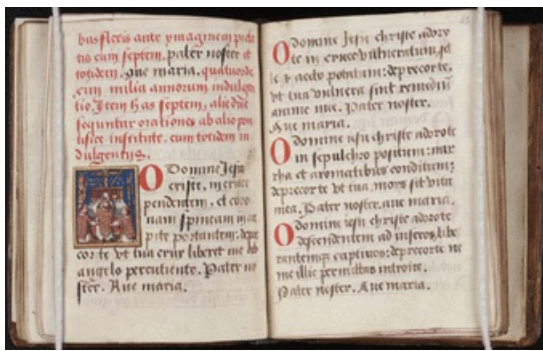 bus flexis ante ymaginem pieta
tis cum septem, pater noster et
totidem, Aue maria, quatuorde
cim milia annorum indulgen
tie. Item has septem, alie due
sequntur orationes ab alio pon
tifice institute, cum totidem in
dulgentijs.
O Domine Jesu
criste, in cruce
pendentem, et coro
nam spineam in ca
pite portantem: depre
cor te vt tua crux liberet me ab
angelo percutiente. Pater no
ster. Aue maria.
O domine Jesu christe adoro
te in cruce vulneratum, fel
le & aceto potatum: deprecor te,
vt tua vulnera sint remediū
anime mee. Pater noster.
Aue maria.
O domine iesu christe adoro te
in sepulchro positum: mir
rha et aromatibus conditum:
deprecor te vt tua, mors sit vita
mea. Pater noster. aue maria.
O domine iesu christe adoro te
descendentem ad inferos, libe
rantemque captiuos: deprecor te ne
me illic permittas introire.
Pater noster. Aue maria.